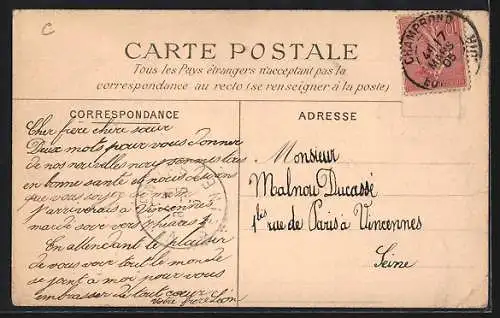 C
CARTE POSTALE
Tous les Pays étrangers n'acceptant pas la
correspondance au recto (se renseigner à la poste)
CHAMPROND
17
MARS
05
CORRESPONDANCE
ADRESSE
Cher frère chère sœur
Deux mots pour vous donner
de nos nouvelles nous sommes tous
en bonne santé et nous désirons
que vous soyez de même
J'arriverais à Vincennes
mardi soir vers 4 heures
En attendant le plaisir
de vous voir tout le monde
se joint à moi pour vous
embrasser de tout cœur
votre frère Léon
Monsieur
Malnou Ducassé
1 bis rue de Paris à Vincennes
Seine